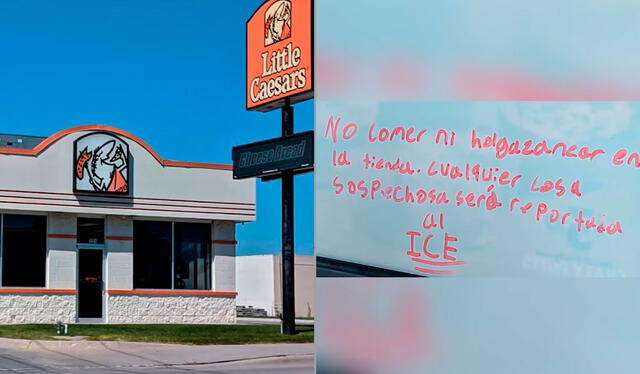 Little
Caesars
Cheese Bread
NO comer ni holgazanear en
la tienda. cualquier cosa
sospechosa será reportada
al
ICE